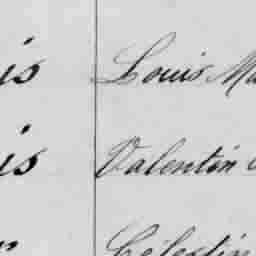 is Louis Ma
is Valentin
Célestin